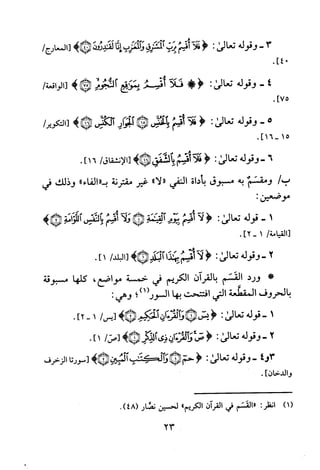 ٣ - وقوله تعالى: ﴿فَلَآ أُقْسِمُ بِرَبِّ ٱلْمَشَٰرِقِ وَٱلْمَغَٰرِبِ إِنَّا لَقَٰدِرُونَ ۝٤٠﴾ [المعارج/
٤٠].
٤ - وقوله تعالى: ﴿۞ فَلَآ أُقْسِمُ بِمَوَٰقِعِ ٱلنُّجُومِ ۝٧٥﴾ [الواقعة/
٧٥].
٥ - وقوله تعالى: ﴿فَلَآ أُقْسِمُ بِٱلْخُنَّسِ ۝١٥ ٱلْجَوَارِ ٱلْكُنَّسِ ۝١٦﴾ [التكوير/
١٥ - ١٦].
٦ - وقوله تعالى: ﴿فَلَآ أُقْسِمُ بِٱلشَّفَقِ ۝١٦﴾ [الإنشقاق/ ١٦].
ب/ ومقسَمٌ به مسبوق بأداة النفي «لا» غير مقترنة بـ«الفاء» وذلك في
موضعين:
١ - قوله تعالى: ﴿لَآ أُقْسِمُ بِيَوْمِ ٱلْقِيَٰمَةِ ۝١ وَلَآ أُقْسِمُ بِٱلنَّفْسِ ٱللَّوَّامَةِ ۝٢﴾
[القيامة/ ١ - ٢].
٢ - وقوله تعالى: ﴿لَآ أُقْسِمُ بِهَٰذَا ٱلْبَلَدِ ۝١﴾ [البلد/ ١].
* ورد القَسَم بالقرآن الكريم في خمسة مواضع، كلها مسبوقة
بالحروف المقطعة التي افتتحت بها السور(١)؛ وهي:
١ - قوله تعالى: ﴿يسٓ ۝١ وَٱلْقُرْءَانِ ٱلْحَكِيمِ ۝٢﴾ [يس/ ١ - ٢].
٢ - وقوله تعالى: ﴿صٓ وَٱلْقُرْءَانِ ذِى ٱلذِّكْرِ ۝١﴾ [ص/ ١].
٣ و٤ - وقوله تعالى: ﴿حمٓ ۝١ وَٱلْكِتَٰبِ ٱلْمُبِينِ ۝٢﴾ [سورتا الزخرف
والدخان].
(١) انظر: «القَسَم في القرآن الكريم» لحسين نصَّار (٤٨).
٢٣